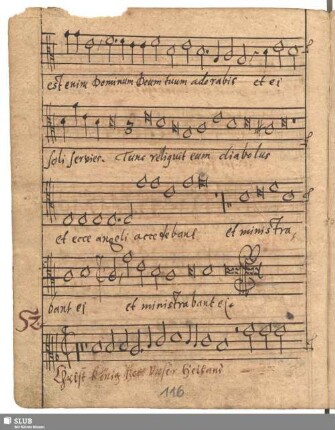 est enim Dominum Deum tuum adorabis et ei
soli servies. Tunc reliquit eum diabolus
et ecce angeli accedebant et ministra,
bant ei et ministrabant ei.
Christ König Herr unser Heiland
116
SLUB